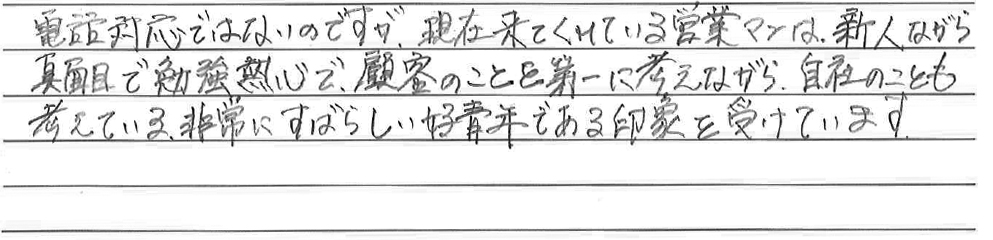 電話対応ではないのですが、現在来てくれている営業マンは、新人ながら
真面目で勉強熱心で、顧客のことを第一に考えながら、自社のことも
考えている、非常にすばらしい好青年である印象を受けています。